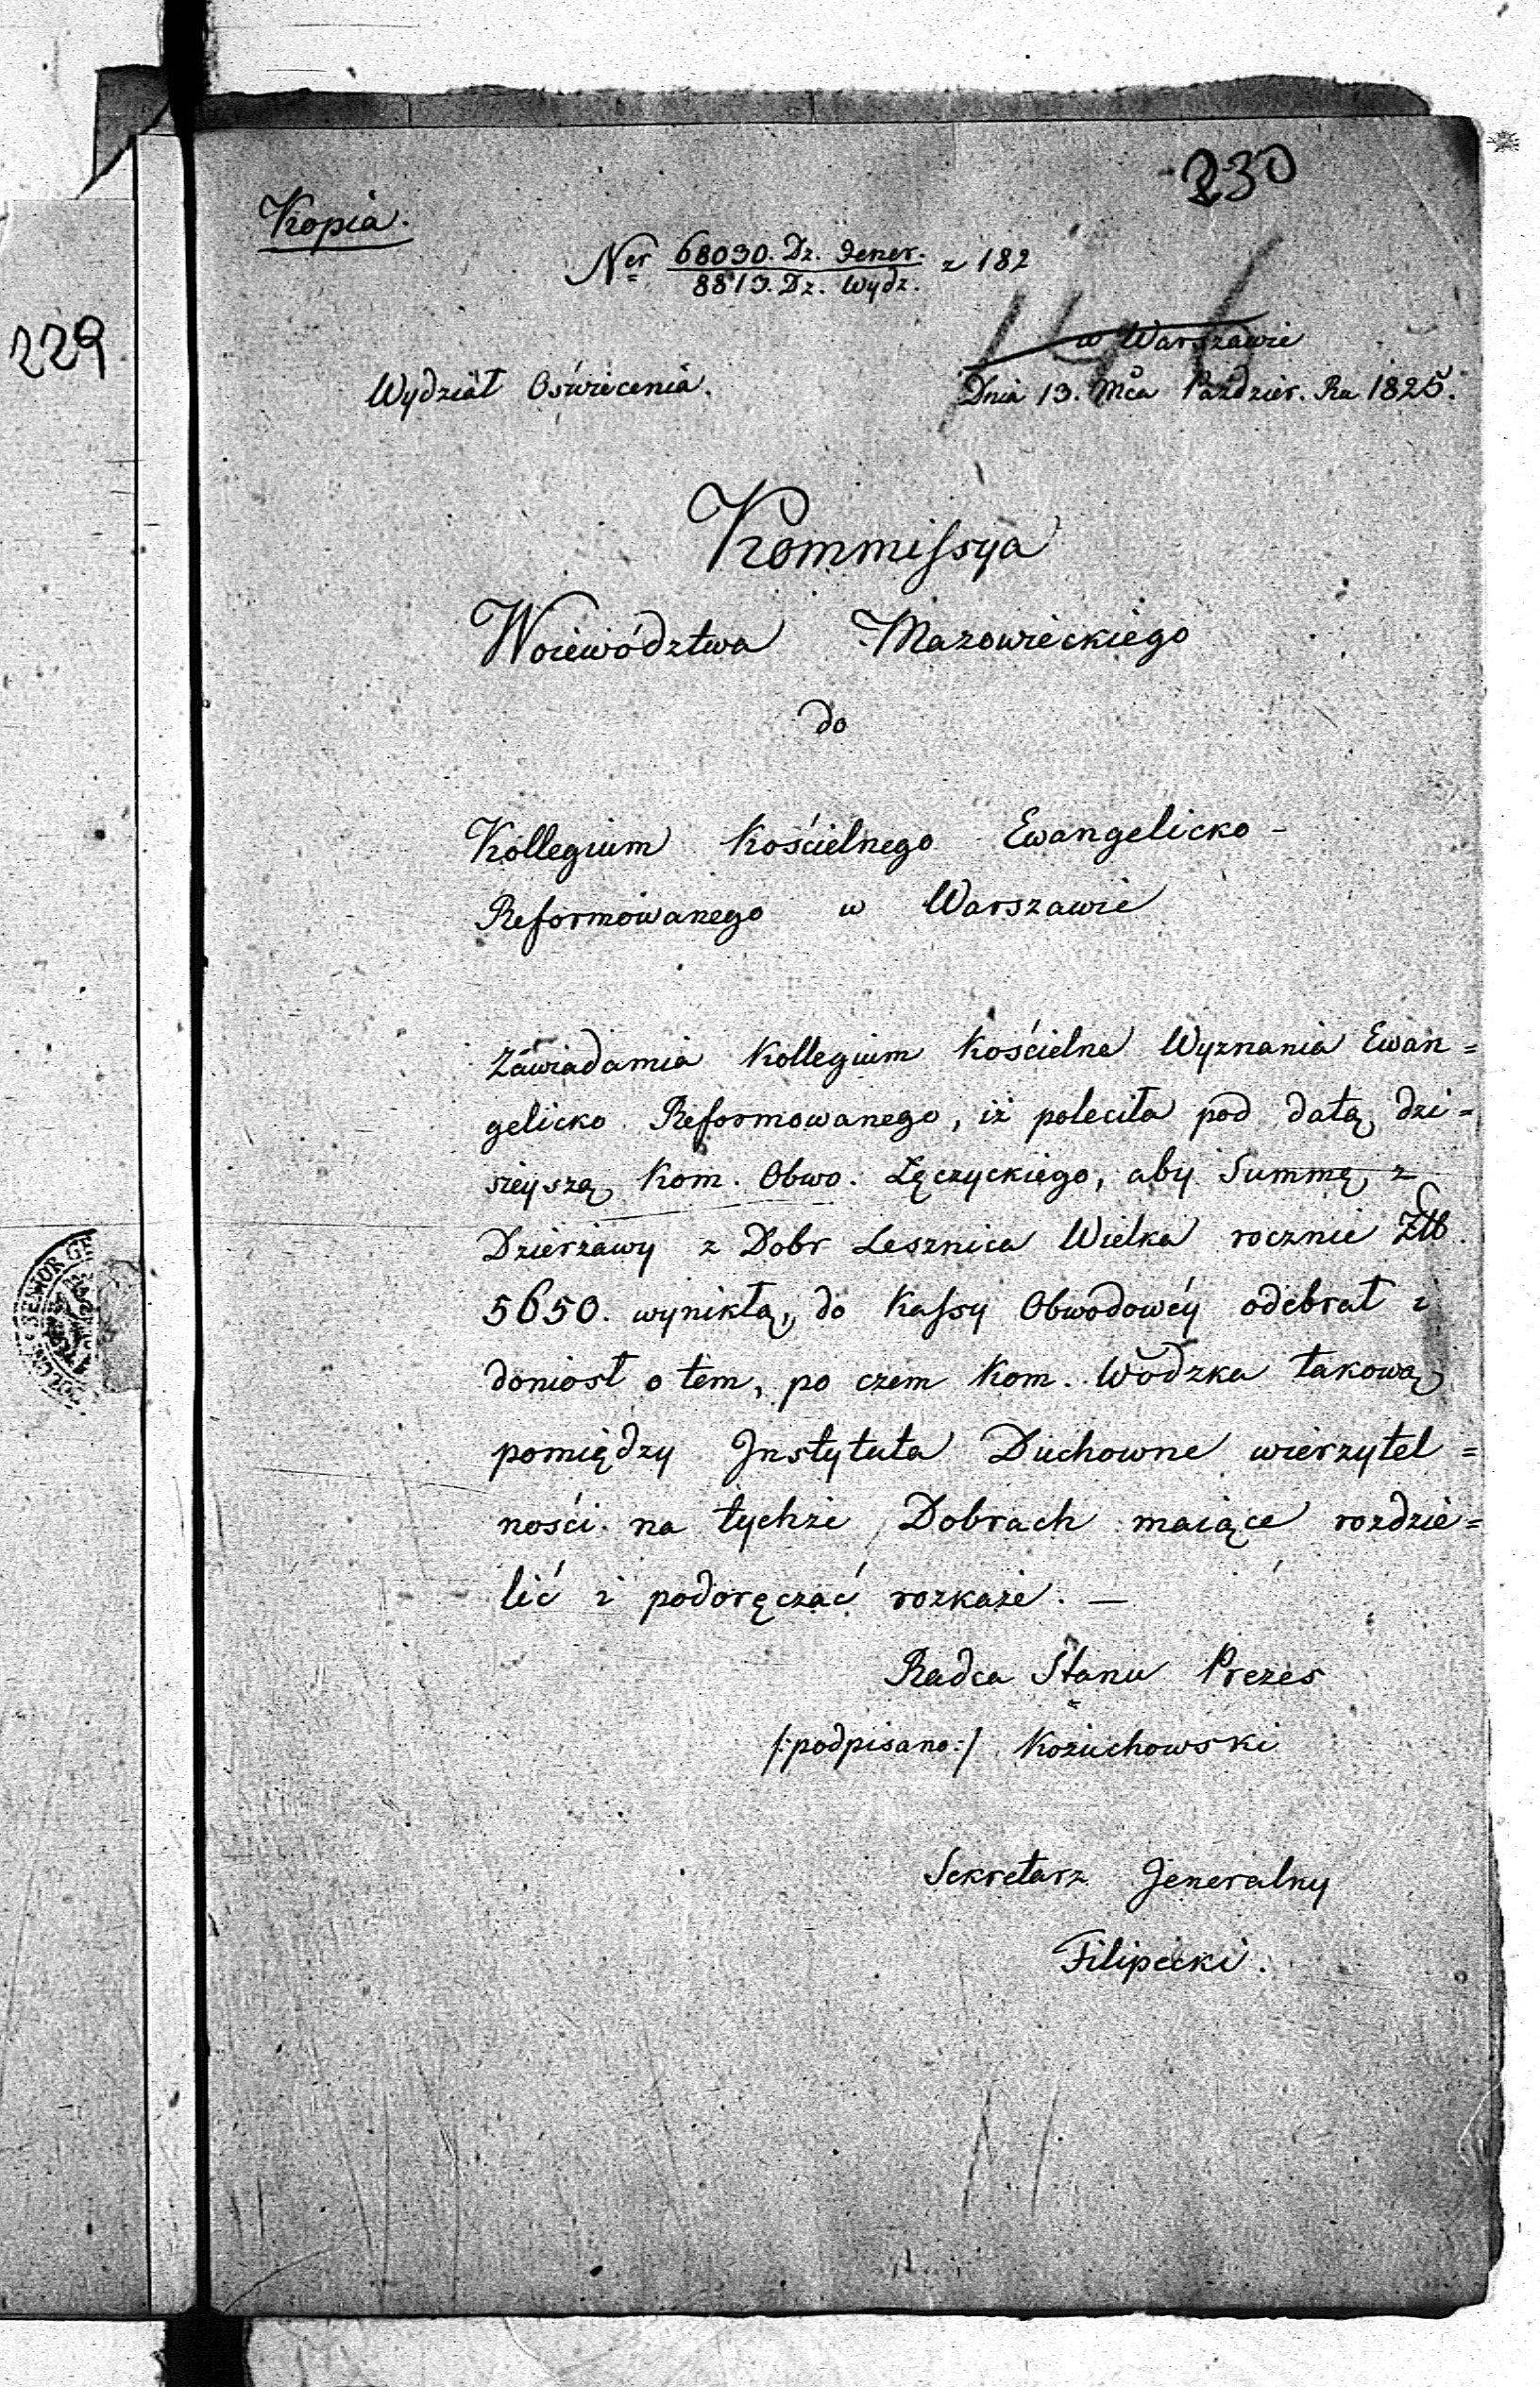 229
230
Kopia.
Ner 68030. Dz. Gener. z 182
8813. Dz. Wydz.
146
w Warszawie
Wydział Oświecenia. Dnia 13. Mca Paździer. Ra 1825.
Kommissya
Woiewództwa Mazowieckiego
do
Kollegium Kościelnego Ewangelicko-
Reformowanego w Warszawie
Zawiadamia Kollegium Kościelne Wyznania Ewan=
gelicko Reformowanego, iż poleciła pod datą dzi=
sieyszą Kom. Obwo. Łęczyckiego, aby Summę z
Dzierżawy z Dobr Lesznica Wielka rocznie Złt.
5650. wynikłą, do Kassy Obwodowéy odebrał i
doniosł o tem, po czem Kom. Wodzka takową
pomiędzy Instytuta Duchowne wierzytel=
ności na tychże Dobrach maiące rozdzie=
lić i podoręczać rozkaże. —
Radca Stanu Prezes
/:podpisano:/ Kożuchowski
Sekretarz Jeneralny
Filipecki.